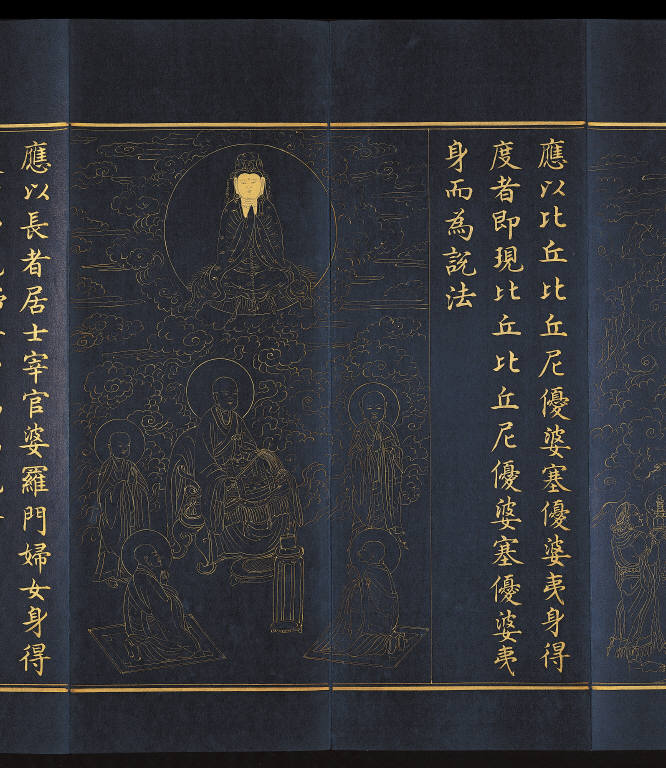 應以比丘比丘尼優婆塞優婆夷身得
度者即現比丘比丘尼優婆塞優婆夷
身而為說法
應以長者居士宰官婆羅門婦女身得